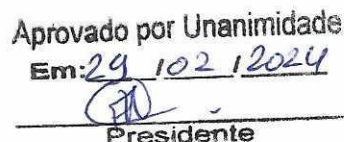 Aprovado por Unanimidade
Em: 29 / 02 / 2024
Presidente